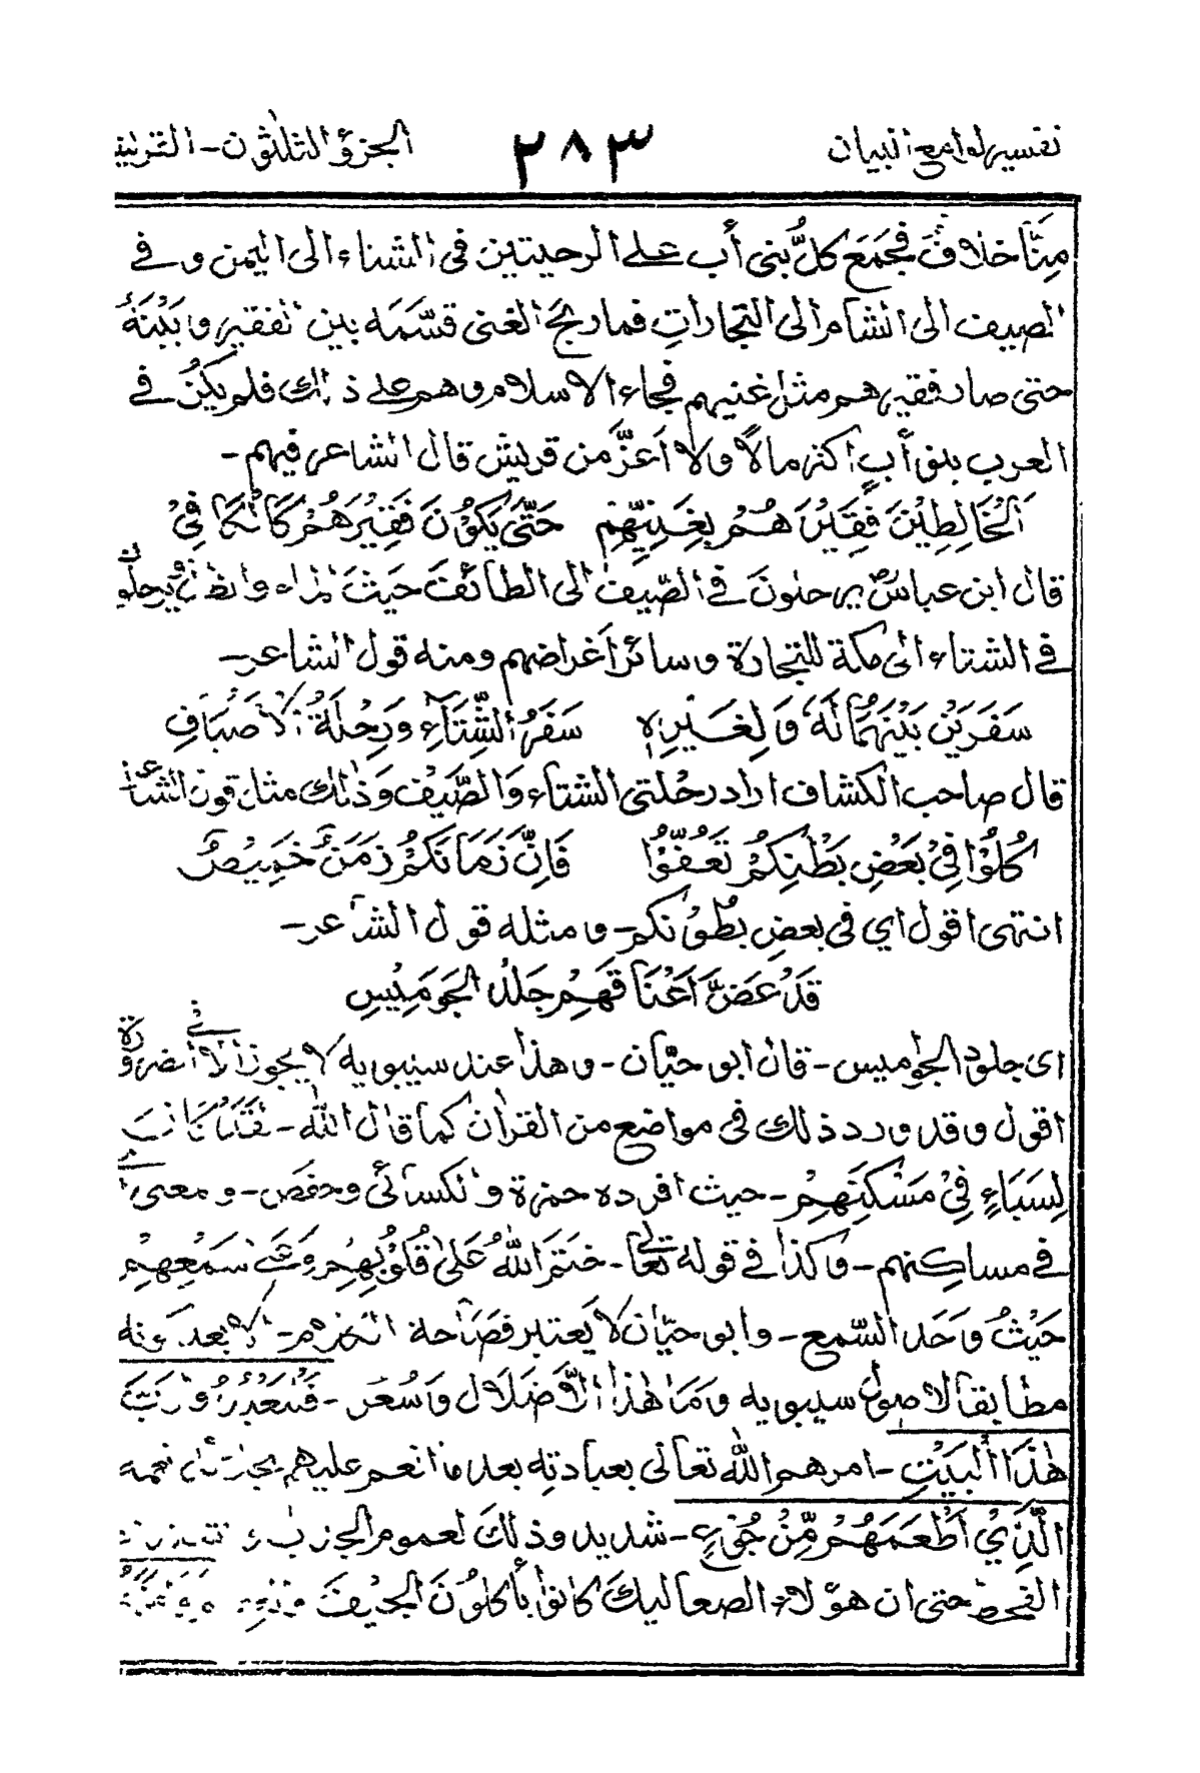 تفسير لوامع البيان ٢٨٣ الجزؤ الثلثون -
مِنَّا خلافٌ فجَمَعَ كلُّ بنى أب على الرحيتين فى الشتاء الى اليمن و فى
الصيف الى الشام الى التجاراتِ فما ربحَ الغنى قسَّمَه بين الفقير و بَيْنَهُ
حتى صار فقيرهم مثل غنيهم فجاء الاسلام وهم على ذلك فلم يكنْ فى
العرب بنو أبٍ اكثر مالًا ولا اَعزَّ من قريش قال الشاعر فيهم -
اَلْخَالِطِيْنَ فَقِيْرَهُمْ بِغَنِيِّهِمْ حَتّٰى يَكُوْنَ فَقِيْرُهُمْ كَالْكَافِىْ
قال ابن عباسؓ يرحلونَ فى الصّيف الى الطائفَ حَيْثَ الماء والظل ويرحلون
فى الشتاء الى مكة للتجارة و سائر اَغراضهم ومنه قول الشاعر -
سَفَرَيْنِ بَيْنَهُمَا لَهٗ وَلِغَيْرِهٖ سَفَرُ الشِّتَآءِ وَرِحْلَةُ الْاَصْيَافِ
قال صاحب الكشاف اراد رحْلتى الشتآء وَالصَّيْف وَذٰلك مثل قول الشاعر
كُلُوْا فِىْ بَعْضِ بَطْنِكُمْ تَعَفُّوْا فَاِنَّ زَمَانَكُمْ زَمَنٌ خَمِيْصٌ
انتهى اقول اي فى بعضِ بطُوْنكم - و مثله قول الشاعر -
قَدْ عَضَّ اَعْنَاقَهِمْ جَلْدُ الجَوَمِيْسِ
اى جلود الجواميس - قال ابو حيّان - و هذا عند سيبويه لا يجوز الّا فى الضرورة
اقول و قد ورد ذلك فى مواضع من القراٰن كما قال اللّٰه - لَقَدْ كَانَ
لِسَبَاءٍ فِىْ مَسْكَنِهِمْ - حيث افرده حمزة والكسآئى وحفص - و معنى
فى مساكِنهم - وكذا فى قوله تعالى - خَتَمَ اللّٰهُ عَلىٰ قُلُوْبِهِمْ وَعَلٰى سَمْعِهِمْ
حَيْثُ وَحَد السّمع - و ابو حيّان لا يَعتبر فصَاحة الكلام - الا بعد كونه
مطابقا لاصول سيبويه وَمَا هٰذا الّا ضَلَال وَسُعُر - فَلْيَعْبُدُوْا رَبَّ
هٰذَا الْبَيْتِ - امرهم اللّٰه تعالى بعبادتِه بعد ما انعم عليهم
الَّذِيْ اَطْعَمَهُمْ مِّنْ جُوْعٍ - شديد وذلكَ لعموم الجدب و
القحط حتى ان هؤلاء الصعاليكَ كانوا يأكلوْنَ الجيْفَ